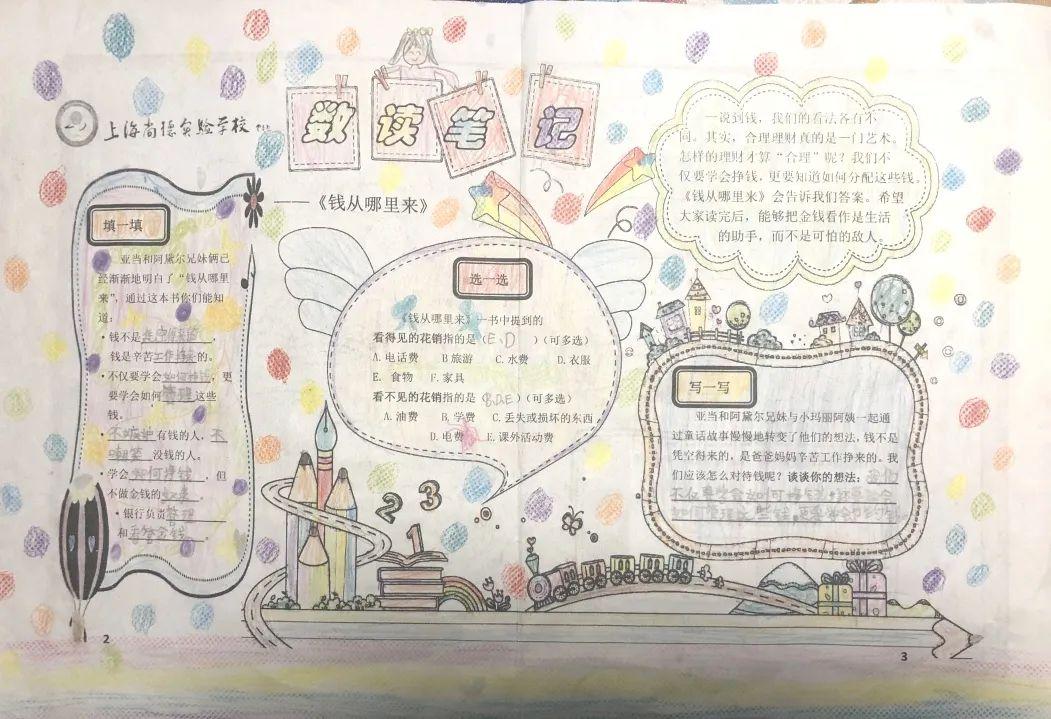 上海尚德实验学校
数读笔记
——《钱从哪里来》
一说到钱，我们的看法各有不
同。其实，合理理财真的是一门艺术。
怎样的理财才算“合理”呢？我们不
仅要学会挣钱，更要知道如何分配这些钱。
《钱从哪里来》会告诉我们答案。希望
大家读完后，能够把金钱看作是生活
的助手，而不是可怕的敌人。
填一填
亚当和阿黛尔兄妹俩已
经渐渐地明白了“钱从哪里
来”，通过这本书你们能知
道：
·钱不是，
钱是辛苦工作挣来的。
·不仅要学会如何挣钱，更
要学会如何管理这些
钱。
·不嫉妒有钱的人，不
嘲笑没钱的人。
·学会如何挣钱，但
不做金钱的奴隶。
·银行负责管理
和。
选一选
《钱从哪里来》一书中提到的
看得见的花销指的是（E、D）（可多选）
A. 电话费 B 旅游 C. 水费 D. 衣服
E. 食物 F. 家具
看不见的花销指的是（B.D.E）（可多选）
A. 油费 B. 学费 C. 丢失或损坏的东西
D. 电费 E. 课外活动费
写一写
亚当和阿黛尔兄妹与小玛丽阿姨一起通
过童话故事慢慢地转变了他们的想法，钱不是
凭空得来的，是爸爸妈妈辛苦工作挣来的。我
们应该怎么对待钱呢？谈谈你的想法：我们
不仅要学会如何挣钱，还要学会
如何管理这些钱，更要学会
1
2
3
2
3